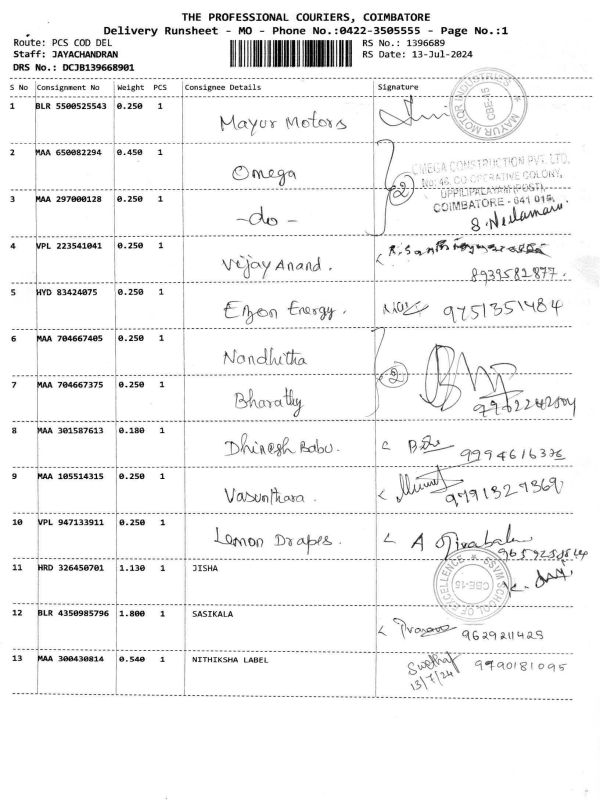 THE PROFESSIONAL COURIERS, COIMBATORE
Delivery Runsheet - MO - Phone No.:0422-3505555 - Page No.:1
Route: PCS COD DEL
RS No.: 1396689
Staff: JAYACHANDRAN
RS Date: 13-Jul-2024
DRS No.: DCJB139668901
S No Consignment No Weight PCS Consignee Details Signature
1 BLR 5500525543 0.250 1 Mayur Motors
MAYUR MOTOR INDUSTRIES * CBE-15 *
2 MAA 650082294 0.450 1 Omega
OMEGA CONSTRUCTION PVT. LTD,
No: 46, CO-OPERATIVE COLONY,
UPPILIPALAYAM (POST),
COIMBATORE - 641 015.
2
3 MAA 297000128 0.250 1 -do-
4 VPL 223541041 0.250 1 Vijay Anand.
8939582877.
5 HYD 83424075 0.250 1 Enon Energy. 9751351484
6 MAA 704667405 0.250 1 Nandhitha
2
7 MAA 704667375 0.250 1 Bharathy
8 MAA 301587613 0.180 1 Dhinesh Babu. 9994616336
9 MAA 105514315 0.250 1 Vasunthara. 9791327369
10 VPL 947133911 0.250 1 Lemon Drapes.
11 HRD 326450701 1.130 1 JISHA
SSVM SCHOOL OF EXCELLENCE * CBE-15
12 BLR 4350985796 1.800 1 SASIKALA
9629211425
13 MAA 300430814 0.540 1 NITHIKSHA LABEL
9790181095
13/7/24